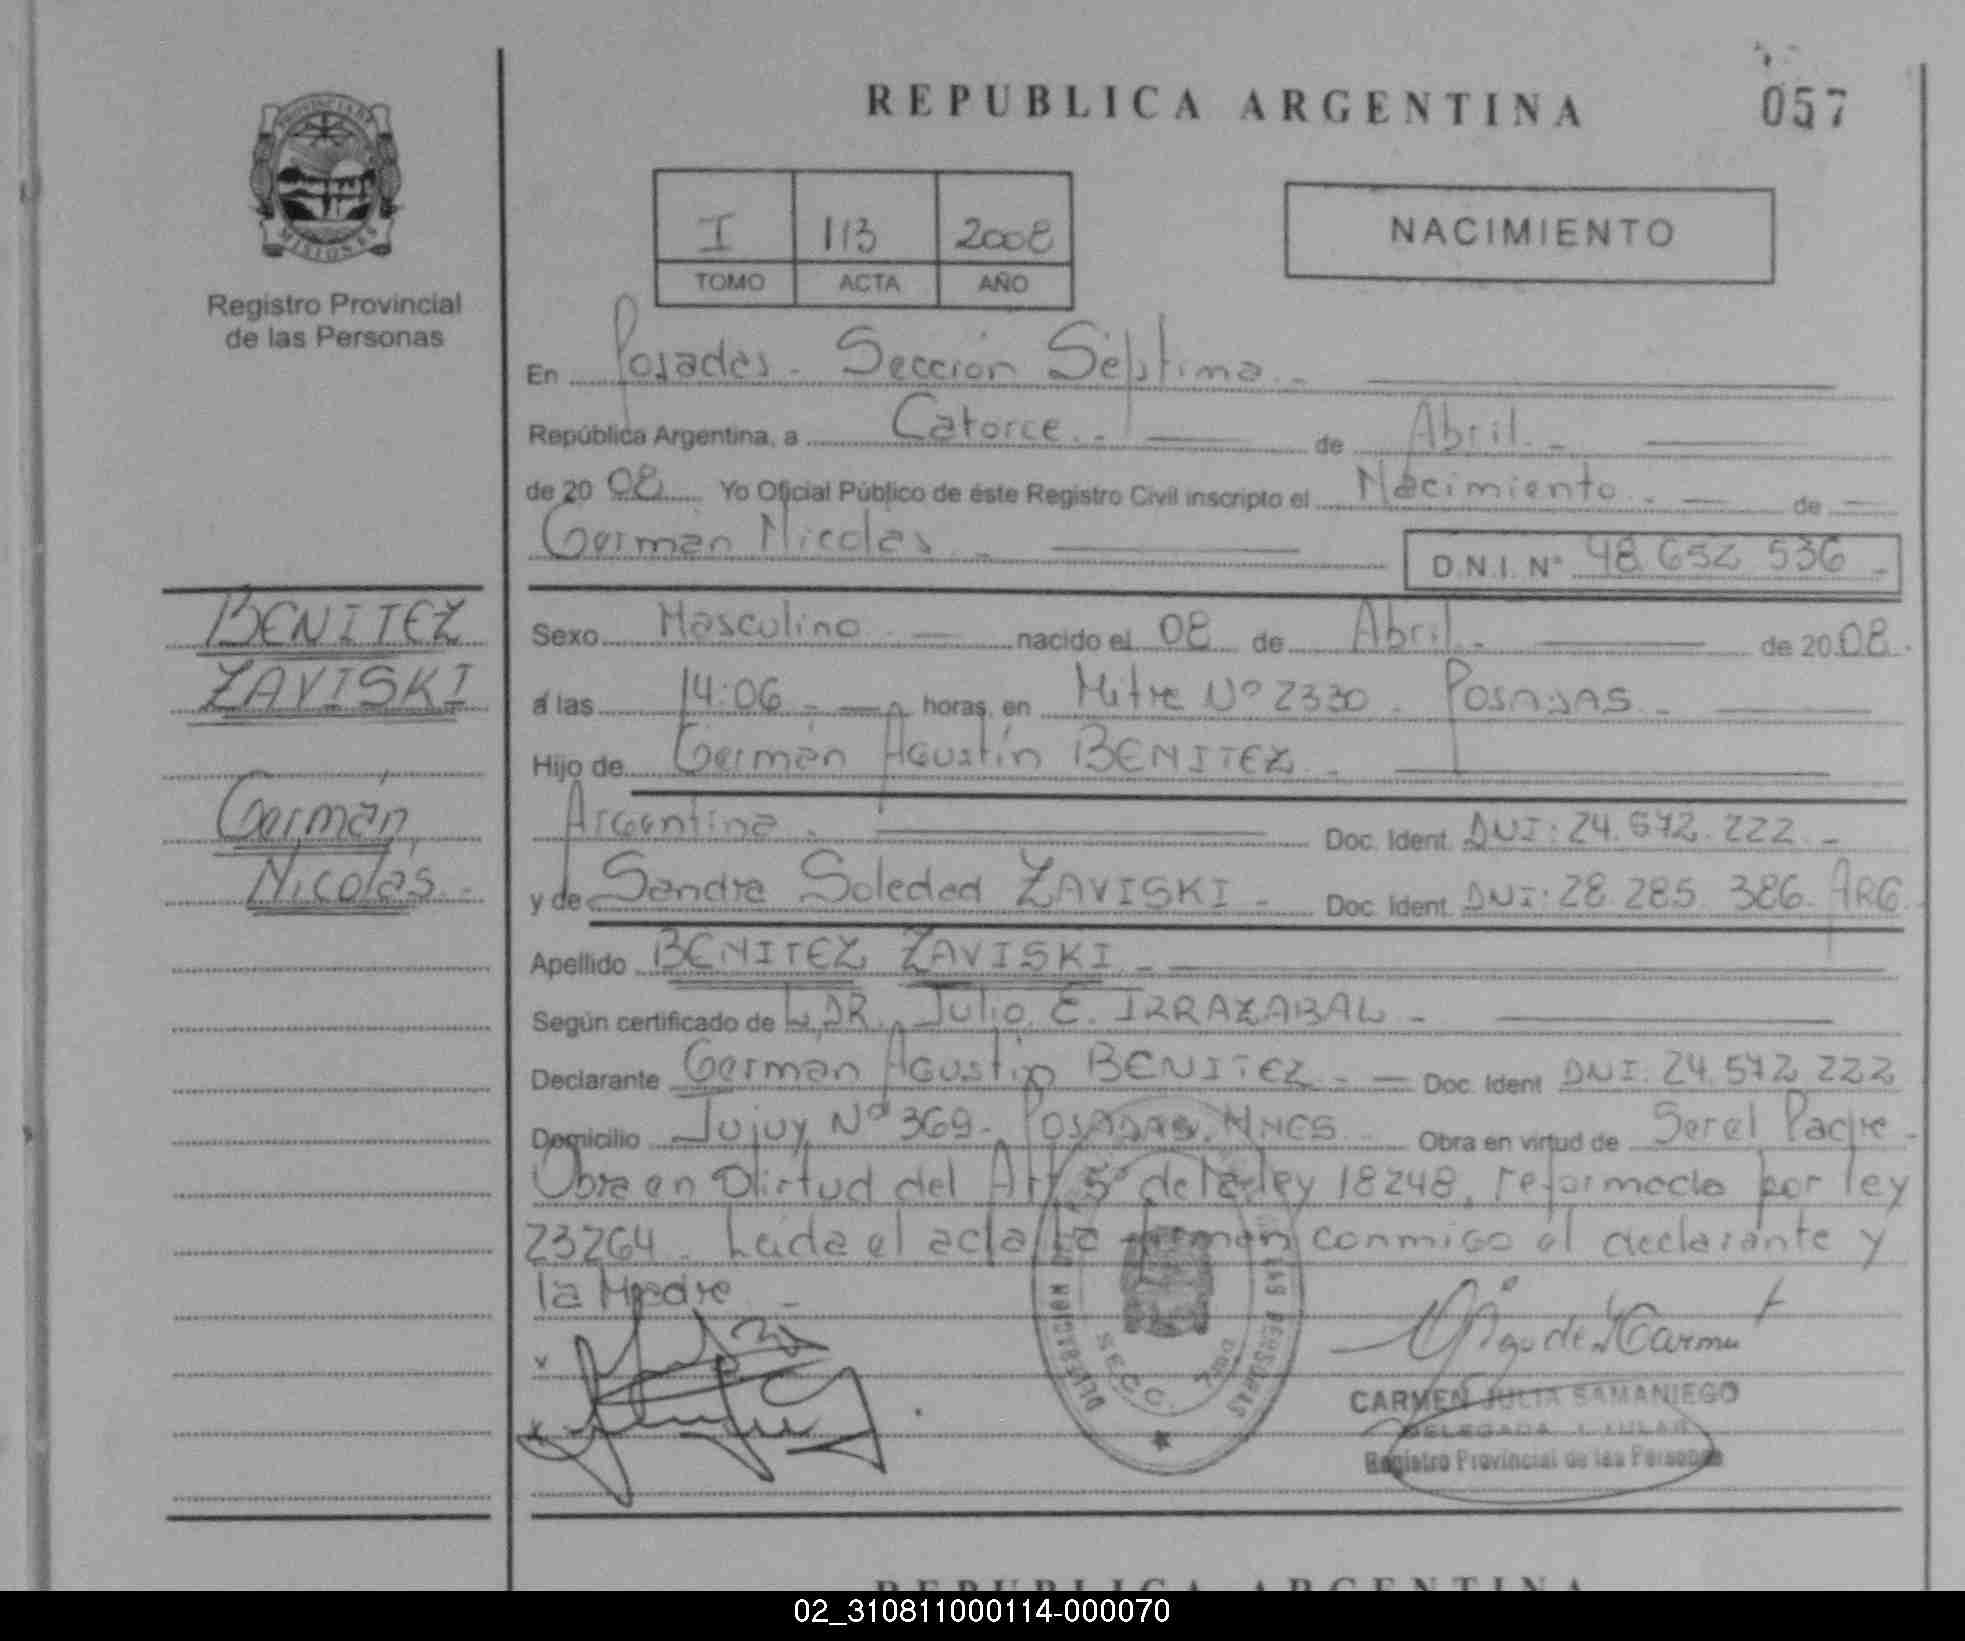 REPUBLICA ARGENTINA
057
PROVINCIA DE
MISIONES
Registro Provincial
de las Personas
I 113 2008
TOMO ACTA AÑO
NACIMIENTO
En Posadas. Sección Séptima.
República Argentina, a Catorce. de Abril.
de 20 08 Yo Oficial Público de éste Registro Civil inscripto el Nacimiento. de
Germán Nicolás
D.N.I. N° 48 652 536
BENITEZ
ZAVISKI
Germán
Nicolás.
Sexo Masculino nacido el 08 de Abril de 20 08.
a las 14:06 horas, en Mitre Nº 2330. Posadas.
Hijo de Germán Agustín BENITEZ
Argentina. Doc. Ident. DNI: 24.572.222.
y de Sandra Soledad ZAVISKI Doc. Ident. DNI: 28.285.386. ARG.
Apellido BENITEZ ZAVISKI
Según certificado de DR. Julio E. IRRAZABAL
Declarante Germán Agustín BENITEZ Doc. Ident DNI. 24.572 222
Domicilio Jujuy Nº 369. Posadas. MNES Obra en virtud de Ser el Padre
Obra en Virtud del Art 5º de la ley 18248, reformada por ley
23264. Leída el acta la firman conmigo el declarante y
la Madre
SECC.
CARMEN JULIA SAMANIEGO
DELEGADA TITULAR
Registro Provincial de las Personas
REPUBLICA ARGENTINA
02_310811000114-000070